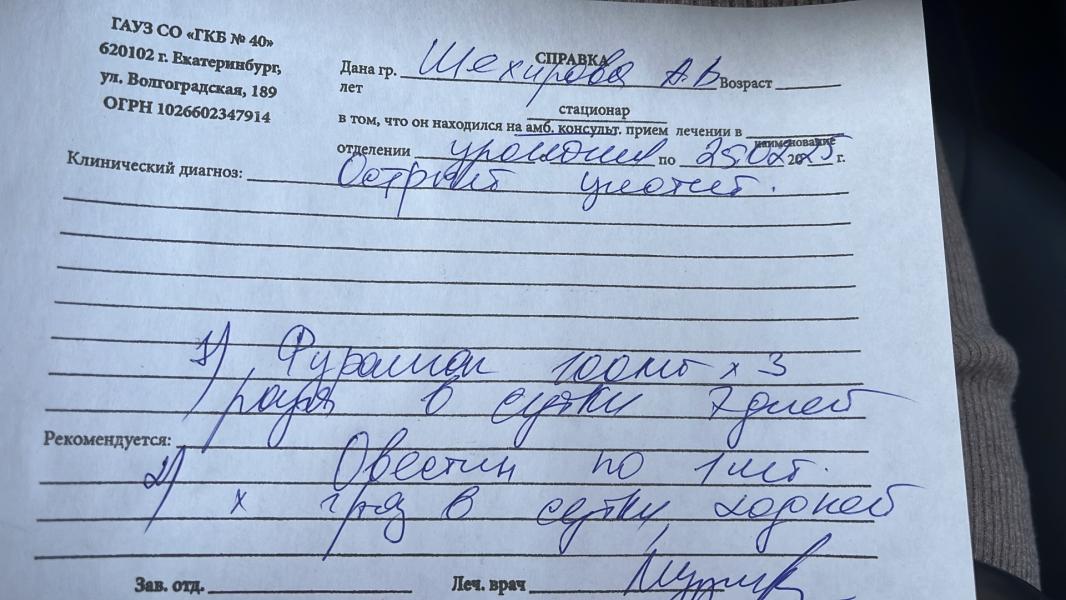 ГАУЗ СО «ГКБ № 40»
620102 г. Екатеринбург,
ул. Волгоградская, 189
ОГРН 1026602347914
СПРАВКА
Дана гр. Шехирева А.В Возраст
лет
стационар
в том, что он находился на амб. консульт. прием лечении в
наименование
отделении урологии по 25 02 2025 г.
Клинический диагноз: Острый цистит.
1) Фурамаг 100мг х 3
раза в сутки 7 дней
Рекомендуется:
2) Овестин по 1 шт.
х 1 раз в сутки, дней
Зав. отд. Леч. врач